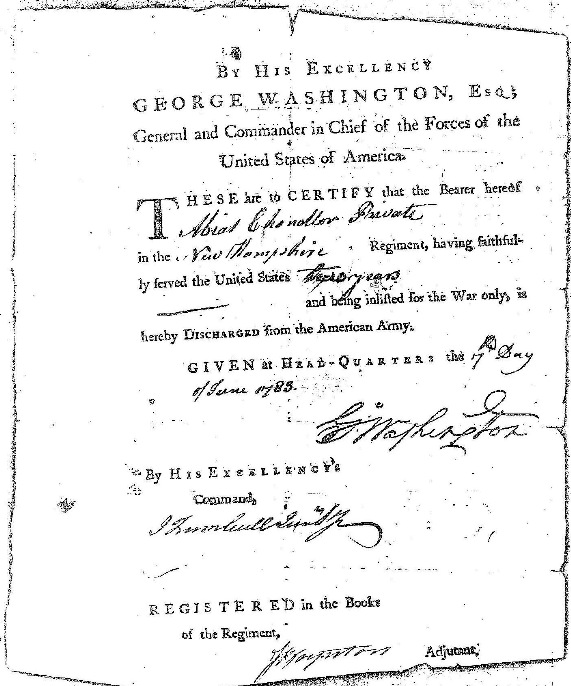 BY HIS EXCELLENCY
GEORGE WASHINGTON, Esq;
General and Commander in Chief of the Forces of the
United States of America.
THESE are to CERTIFY that the Bearer hereof
Abial Chandler Private
in the New Hampshire Regiment, having faithful-
ly served the United States years
and being inlisted for the War only, is
hereby DISCHARGED from the American Army.
GIVEN at HEAD-QUARTERS the Day
of June 1783.
G. Washington
By HIS EXCELLENCY's
Command,
J Trumbull Junr
REGISTERED in the Books
of the Regiment,
Adjutant,